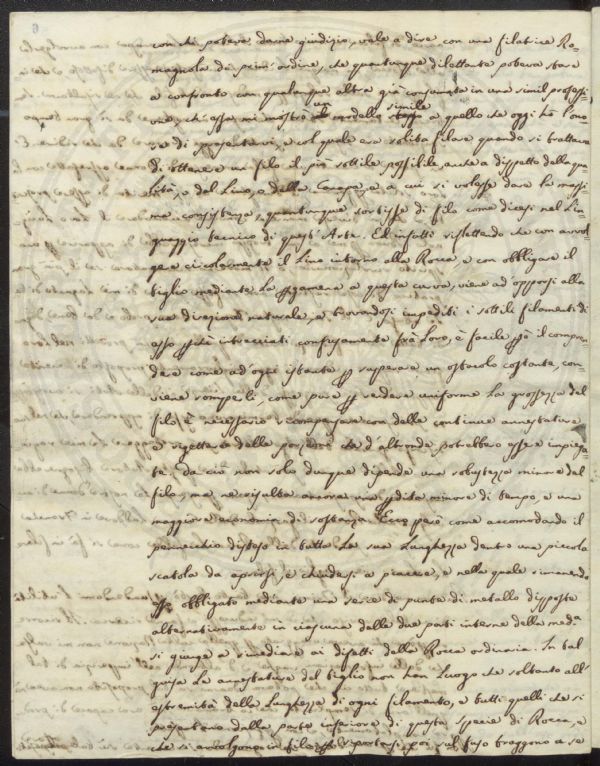 6
con chi poteva darne giudizio, vale a dire con una filatrice Ro-
magnola di prim'ordine, che quantunque dilettante poteva stare
a confronto con qualunque altra già consumata in una simil professi-
one, ch'essa mi mostrò un modello simile a quello che oggi hò l'ono
re di presentarvi, e col quale era solita filare quando si trattava
di ottenere un filo il più sottile possibile, anche a dispetto della qua
lità, o del Lino, o della Canapa, e a cui si volesse dare la massi-
ma consistenza, quantunque sortisse di filo come dicesi nel Lin
guaggio tecnico di quest'Arte. Ed infatti riflettendo che con avvol-
gere circolarmente il Lino intorno alla Rocca, e con obbligare il
tiglio mediante la pergamena a questa curva, viene ad'opporsi alla
sua direzione naturale, e trovandosi impediti i sottili filamenti di
esso perché intrecciati confusamente frà Loro, è facile però il compren
dere come ad'ogni istante per superare un ostacolo costante, con-
viene romperli, come pure per rendere uniforme la grossezza del
filo è necessario ricompensare con delle continue annestature
e rigettare delle porzioni che d'altronde potrebbero essere impiega-
te. da ciò non solo dunque dipende una robustezza minore del
filo, ma ne risulta ancora una perdita minore di tempo, e una
maggiore economia di sostanza. Ecco però come accomodando il
pennecchio disteso in tutta la sua Lunghezza dentro una piccola
scatola da aprirsi, e chiudersi a piacere, e nella quale rimanendo
obbligato mediante una serie di punte di metallo disposte
alternativamente in ciascuna delle due parti interne della meda
si giunge a rimediare ai difetti della Rocca ordinaria. In tal
guisa Le annestature del tiglio non han Luogo che soltanto all'
estremità della Lunghezza di ogni filamento, e tutti quelli che si
presentano dalla parte inferiore di questa specie di Rocca, e
che si avvolgono in filo riportasi poi sul fuso traggono a se